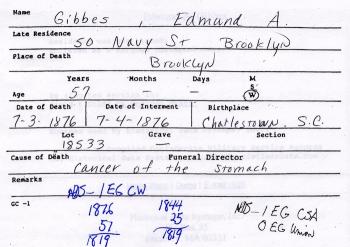 Name Gibbes, Edmund A.
Late Residence 50 Navy St Brooklyn
Place of Death Brooklyn
Years Months Days M S W
Age 57 — —
Date of Death Date of Interment Birthplace
7-3-1876 7-4-1876 Charlestown, S.C.
Lot Grave Section
18533 —
Cause of Death Funeral Director
Cancer of the Stomach
Remarks
NDS-1 EG CW
GC -1
1876 1844
57 25
1819 1819
NDS-1 EG CSA
0 EG Union